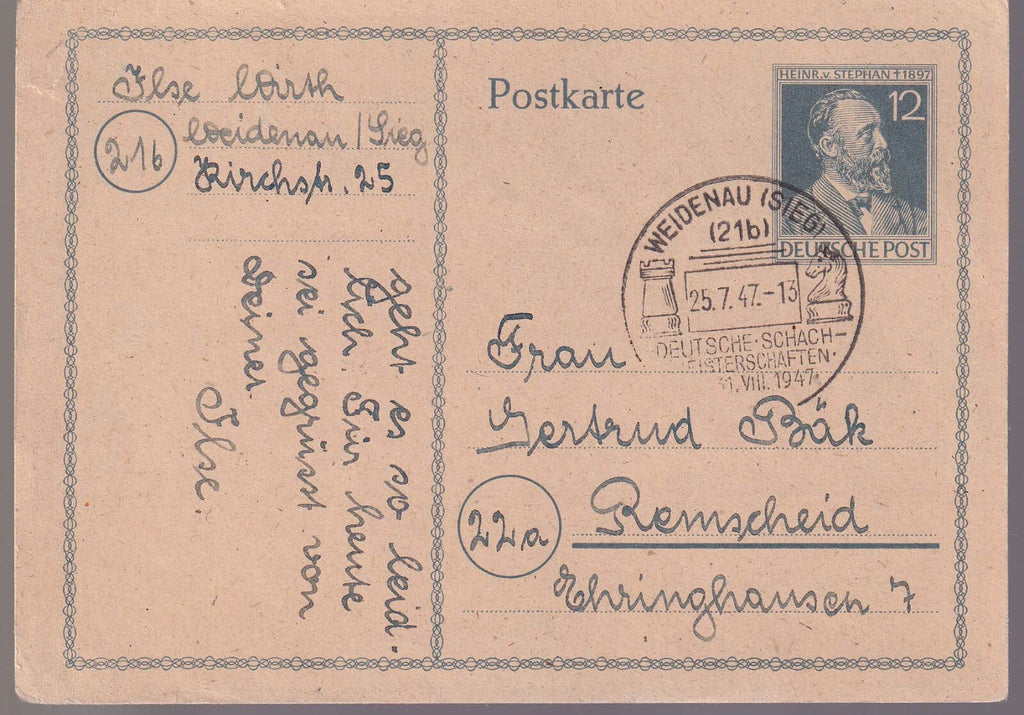 Ilse Wirth
21b
Weidenau/Sieg
Kirchstr. 25
geht es so leid-
lich. Für heute
sei gegrüsst von
Deiner
Ilse.
Postkarte
HEINR. v. STEPHAN † 1897
12
DEUTSCHE POST
WEIDENAU (SIEG)
(21b)
25.7.47.-13
DEUTSCHE·SCHACH-
EISTERSCHAFTEN·
31.VIII.1947
Frau
Gertrud Bäk
22a
Remscheid
Ehringhausen 7